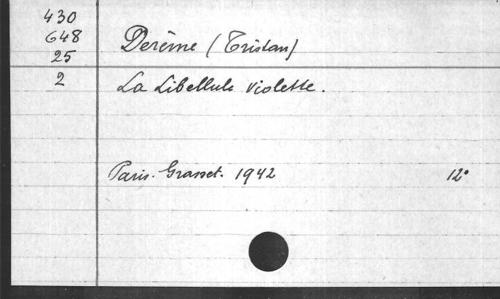 430
648
25
2
Derème (Tristan)
La Libellule violette.
Paris. Grasset. 1942 12°